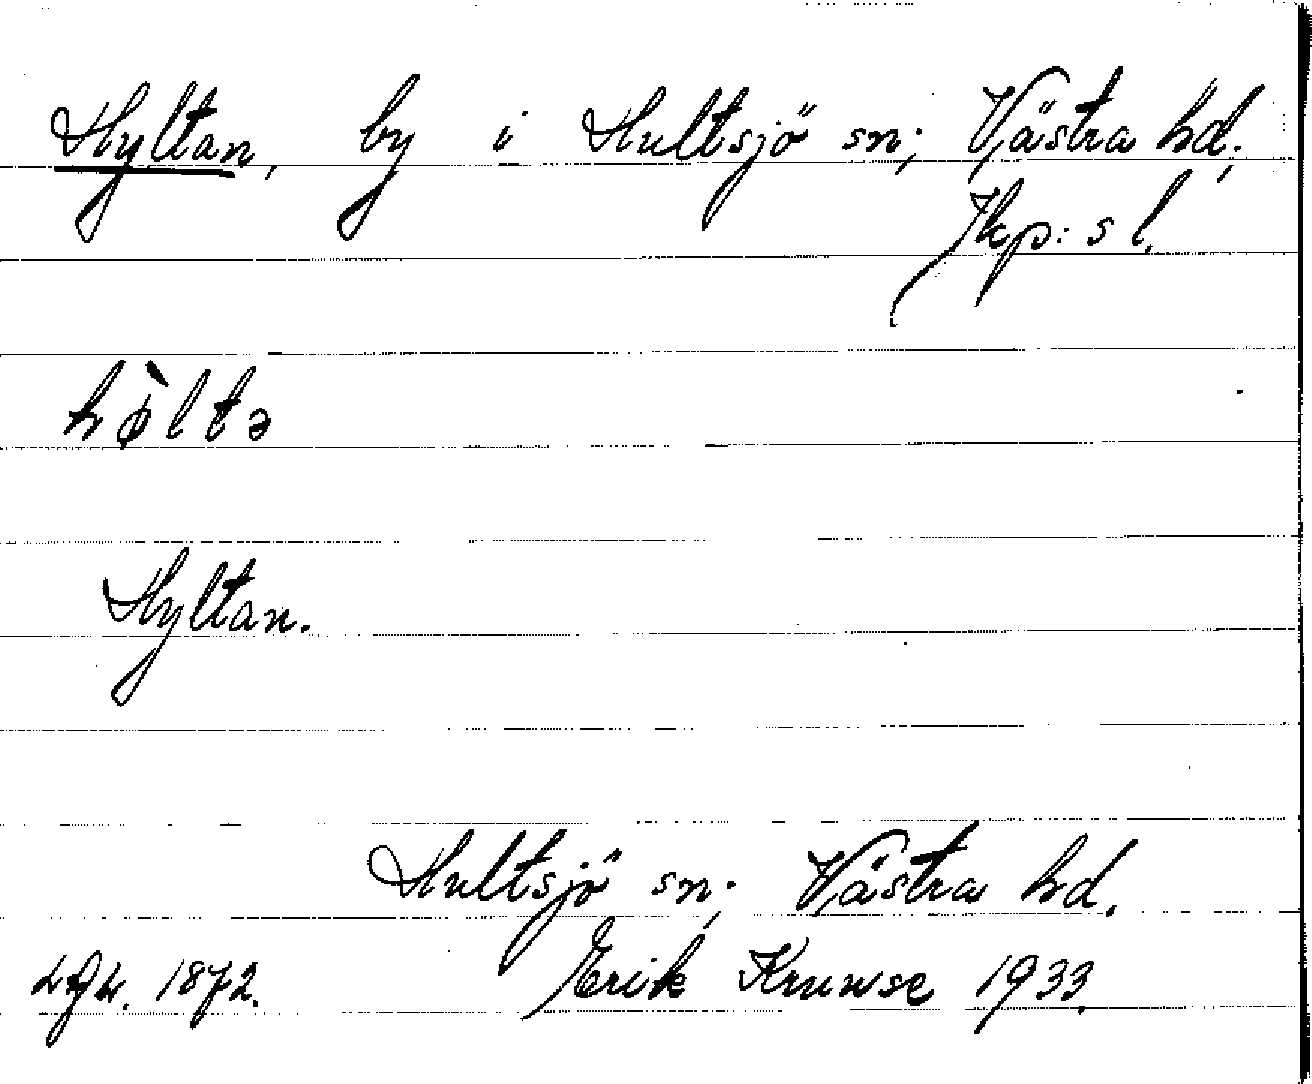 Hyltan, by i Hultsjö sn; Västra hd;
Jkp: s l.
hø̀ltə
Hyltan.
Hultsjö sn; Västra hd.
1872. Erik Kruuse 1933.